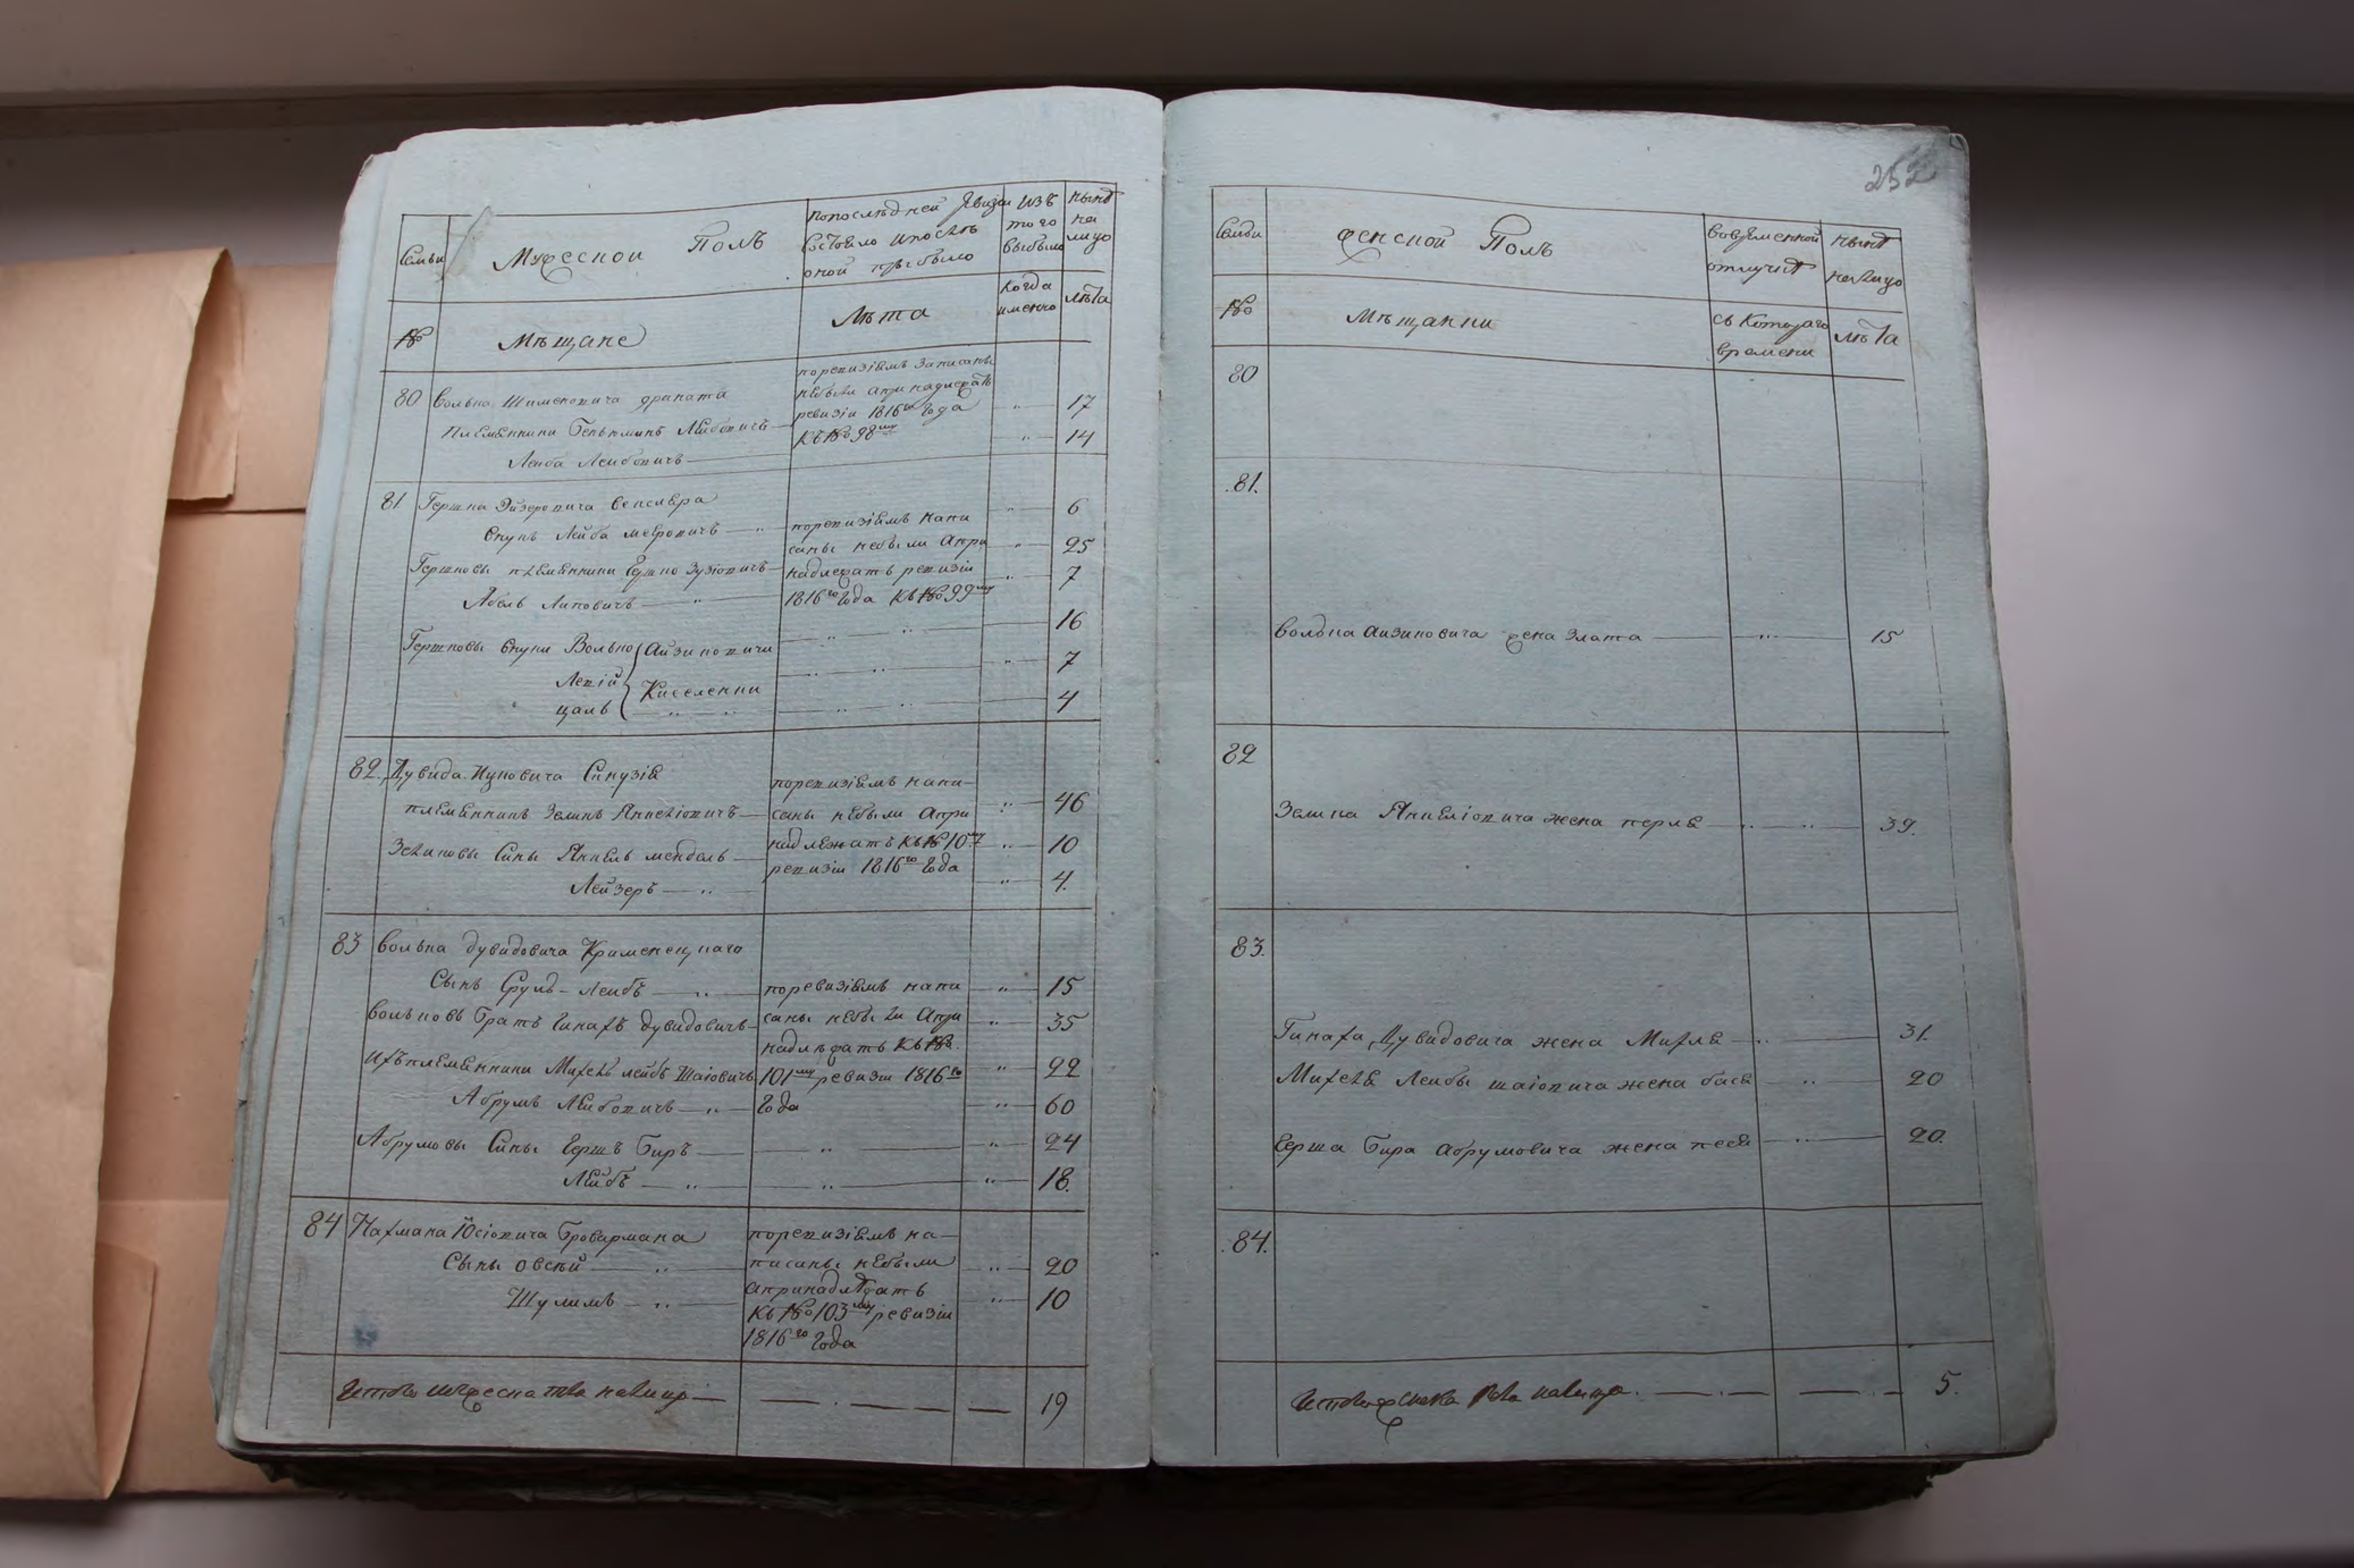 Семьи
Мужеской Полъ
попослѣдней Ревизіи
состояло ипослѣ
оной прибыло
изъ
того
выбыло
нынѣ
на
лицо
№
Мѣщане
Лѣта
когда
именно
лѣта
80 Волька Шимоновича
племянники Бенюминъ Лейбовичъ
Лейба Лейбовичъ
поревизіямъ записаны
небыли апринадлежатъ
ревизіи 1816го Года
къ № 98му
17
14
81 Гершка Эйзеровича
внукъ Лейба меѣровичъ
Гершковы племянники Гершко Зузіовичъ
Абель Липовичъ
поревизіямъ напи
саны небыли апри
надлежатъ ревизіи
1816го Года къ № 99му
6
25
7
Гершковы внуки Волько Айзиковичи
Лейзій Киселенки
цаль
16
7
4
82. Дувида Ицковича
племянникъ Зеликъ Янкеліовичъ
Зеликовы сины Янкель мендель
Лейзеръ
поревизіямъ напи-
саны небыли апри
надлежатъ къ №
ревизіи 1816го Года
46
10
4.
83 Волька дувидовича Кременецкаго
Сынъ Сруль-лейбъ
вольковъ братъ Гинахъ дувидовичъ
ихъ племянники Михель лейбъ Шаіовичъ
Абрумъ Лейбовичъ
Абрумовы Сины Гершъ Биръ
Лейбъ
поревизіямъ напи
саны небыли апри
надлѣжатъ къ №
101му ревизіи 1816го
Года
15
35
22
60
24
18.
84 Нахмана Юсіовича Бровармана
Сыны овсѣй
Шулимъ
поревизіямъ на-
писаны небыли
апринадлѣжатъ
къ № 103му ревизіи
1816го Года
20
10
Итого мужеска пола налицо 19
252
Семьи
Женской Полъ
вовременной
отлучкѣ
нынѣ
налицо
№
Мѣщанки
съ которого
времени
лѣта
80
81.
Волька Айзиковича жена Злата 15
82
Зелика Янкеліовича жена перля 39.
83.
Гинаха Дувидовича жена Михля 31.
Михеля Лейбы шаіовича жена бася 20
Герша Бира абрумовича жена песя 20.
84.
Итого женска пола налицо 5.